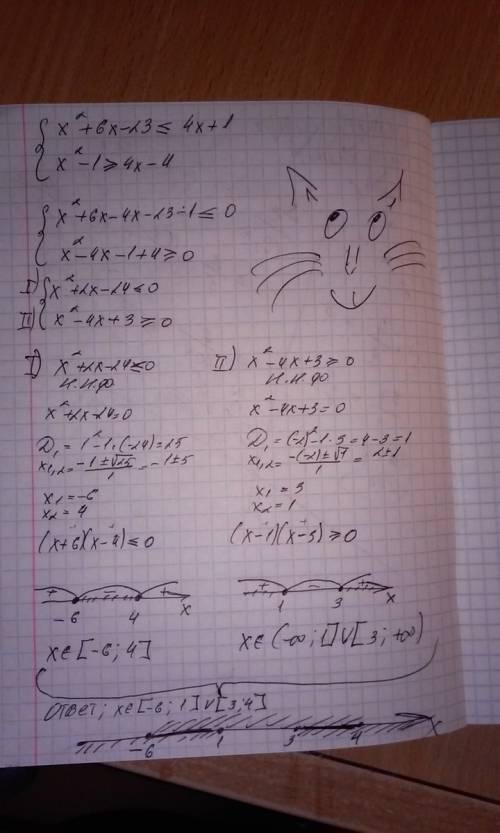 x²+6x-23≤4x+1
x²-1≥4x-4
x²+6x-4x-23-1≤0
x²-4x-1+4≥0
I) x²+2x-24≤0
II) x²-4x+3≥0
I) x²+2x-24≤0
Н.Н.Ф
x²+2x-24=0
D₁=1²-1·(-24)=25
x₁,₂=(-1±√25)/1=-1±5
x₁=-6
x₂=4
(x+6)(x-4)≤0
+ - +
-6 4 x
x∈[-6;4]
II) x²-4x+3≥0
Н.Н.Ф
x²-4x+3=0
D₁=(-2)²-1·3=4-3=1
x₁,₂=(-(-2)±√1)/1=2±1
x₁=3
x₂=1
(x-1)(x-3)≥0
+ - +
1 3 x
x∈(-∞;1]∪[3;+∞)
Ответ; x∈[-6;1]∪[3;4]
-6 1 3 4 x